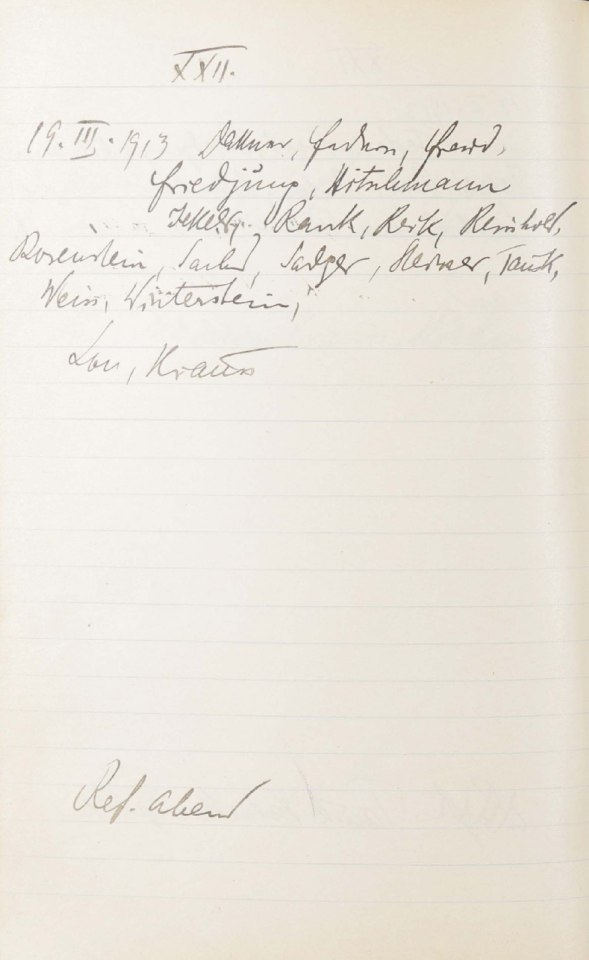 XXII.
19. III. 1913 Dattner, Federn, Freud,
Friedjung, Hitschmann
Jekels, Rank, Reik, Reinhold,
Rosenstein, Sachs, Sadger, Steiner, Tausk,
Weiss, Winterstein,
Lou, Krauss
Ref. abend